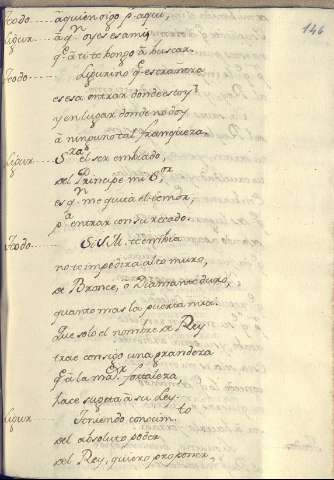 146
tèodo..... a quien oigo p. aqui,
Ligur..... a q.n oyes es a mi,
q.e a ti te bengo a buscar.
Teodo..... Ligurino q.e estrañeza
es esa entrar donde estoy
y en lugar donde no doy
a ninguno tal franqueza.
Ligur..... S.ra el ser embiado,
del Principe mi S.or
es q.n me quita el temor,
p.a entrar con su recado.
Teodo..... Si S.M. te embia
no te impedira alto muro,
de Bronce, o Diamante duro,
quanto mas la puerta mia.
Que solo el nombre de Rey
trae consigo una grandeza
q.e a la maior fortaleza
hace sugeta a su Ley.
Ligur..... Teniendo conocim.to
del absoluto poder
del Rey, quiero proponer,